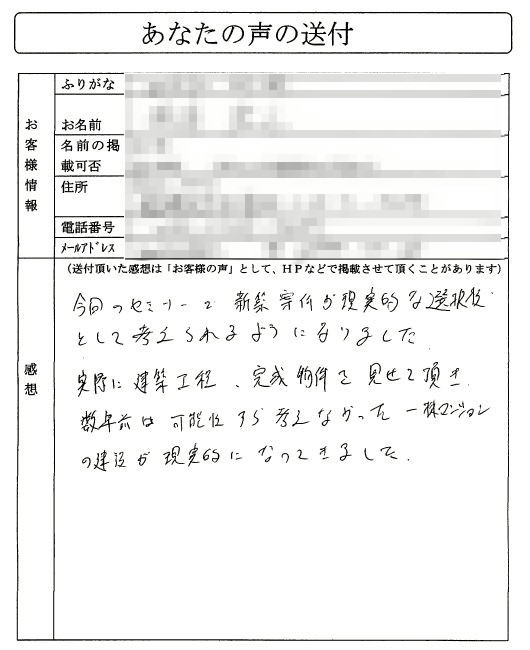 あなたの声の送付
お客様情報
ふりがな
お名前
名前の掲
載可否
住所
電話番号
ﾒｰﾙｱﾄﾞﾚｽ
感想
(送付頂いた感想は「お客様の声」として、ＨＰなどで掲載させて頂くことがあります)
今回のセミナーで 新築案件が現実的な選択肢
として考えられるようになりました.
実際に建築工程、完成物件を見せて頂き.
数年前は可能性すら考えなかった一棟マンション
の建設が現実的になってきました.